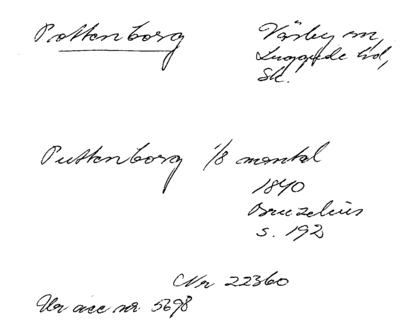 Pottenborg
Väsby sn,
Luggude hd,
Sk.
Puttenborg 1/8 mantal
1840
Bruzelius
s. 192
Nr 22360
Ur acc nr 5698